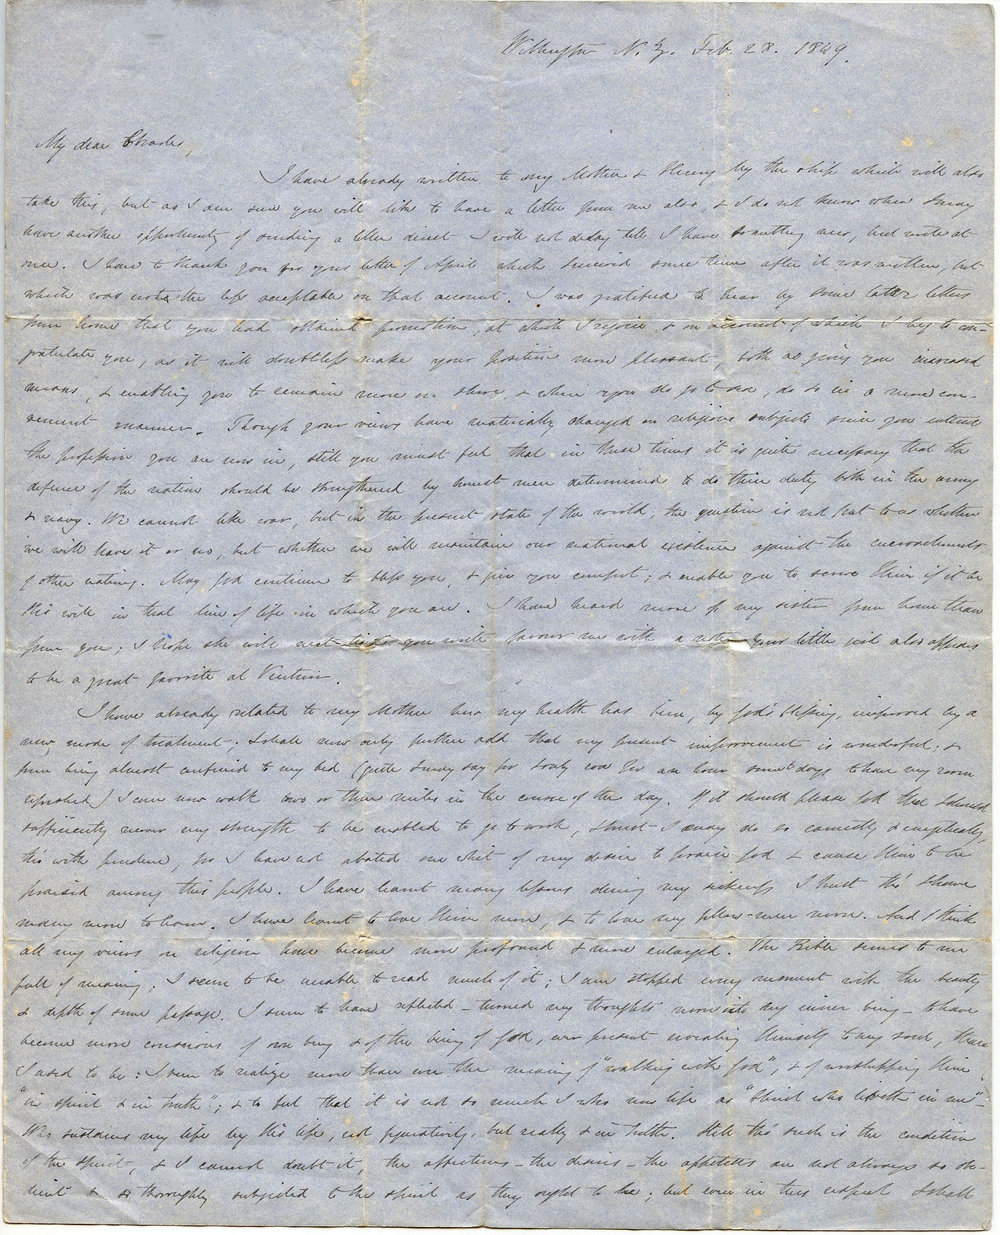 N. Z. Feb. 28. 1849.
My dear Charles,
I have already written to my Mother & Henry by the ship which will also
take this, but as I am sure you will like to have a letter from me also, & I do not know when I may
have another opportunity of sending a letter direct I will not delay till I have something new, but write at
once. I have to thank you for your letter of April which I received some time after it was written, but
which was not the less acceptable on that account. I was gratified to hear by some later letters
from home that you had obtained promotion, at which I rejoice, & on account of which I beg to con-
gratulate you, as it will doubtless make your position more pleasant, both as giving you increased
means, & enabling you to remain more on shore, & when you do go to sea, do so in a more con-
venient manner. Though your views have materially changed on religious subjects since you entered
the profession you are now in, still you must feel that in these times it is quite necessary that the
defence of the nation should be strengthened by honest men determined to do their duty both in the army
& navy. We cannot like war, but in the present state of the world, the question is not put to us whether
we will have it or no, but whether we will maintain our national existence against the encroachments
of other nations. May God continue to bless you, & give you comfort; & enable you to serve Him if it be
His will in that line of life in which you are. I have heard more of my sister from home than
from you; I hope she will next time you write favour me with a note. Your little girl also appears
to be a great favorite at
I have already related to my Mother how my health has been, by God's blessing, improved by a
new mode of treatment; I shall now only further add that my present improvement is wonderful; &
from being almost confined to my bed (quite so for an hour some days to have my room
refreshed) I can now walk two or three miles in the course of the day. If it should please God that I should
sufficiently recover my strength to be enabled to go to work, I trust I may do so earnestly & energetically,
tho' with prudence, for I have not abated one whit of my desire to praise God & cause Him to be
praised among this people. I have learnt many lessons during my sickness I trust tho' I have
many more to learn. I have learnt to love Him more, & to love my fellow-men more. And I think
all my views on religion have become more profound & more enlarged. The Bible seems to me
full of meaning; I seem to be unable to read much of it; I am stopped every moment with the beauty
& depth of some passage. I seem to have reflected - turned my thoughts more into my inner being - to have
become more conscious of own being & of the being of God, ever present revealing Himself to my soul, than
I used to be: I seem to realize more than ever the meaning of "walking with God"; & of worshipping Him
"in spirit & in truth"; & to feel that it is not so much I who now live as "Christ who liveth in me" -
Who sustains my life by His life, not figuratively, but really & in truth. Still tho' such is the condition
of the spirit, & I cannot doubt it, the affections - the desires - the appetites are not always so obe-
dient & so thoroughly subjected to the spirit as they ought to be; but even in this respect I shall